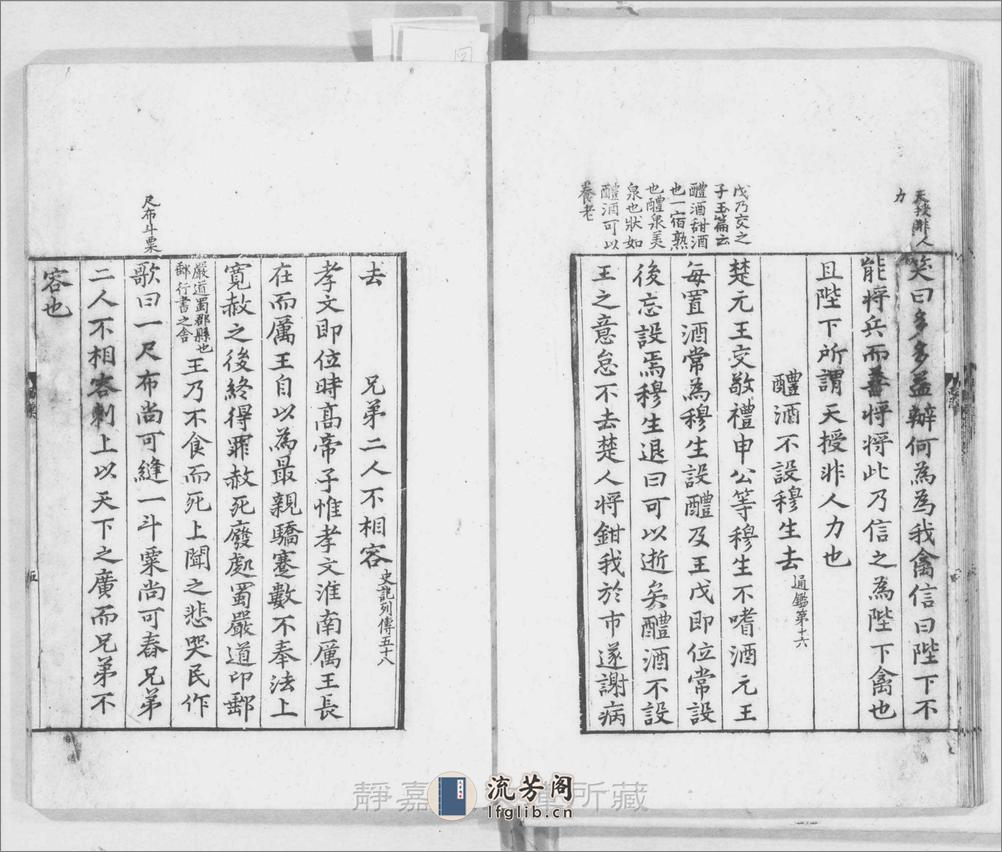 天授非人
力
笑曰多多益辦何為為我禽信曰陛下不
能將兵而善將將此乃信之為陛下禽也
且陛下所謂天授非人力也
醴酒不設穆生去 通鑑第十六
戊乃交之
子玉篇云
醴酒甜酒
也一宿熟
也醴泉美
泉也狀如
醴酒可以
養老
楚元王交敬禮申公等穆生不嗜酒元王
每置酒常為穆生設醴及王戊即位常設
後忘設焉穆生退曰可以逝矣醴酒不設
王之意怠不去楚人將鉗我於市遂謝病
去
兄弟二人不相容 史記列傳五十八
孝文即位時高帝子惟孝文淮南厲王長
在而厲王自以為最親驕蹇數不奉法上
寬赦之後終得罪赦死廢處蜀嚴道卬郵
嚴道蜀郡縣也
郵行書之舍
王乃不食而死上聞之悲哭民作
尺布斗粟
歌曰一尺布尚可縫一斗粟尚可舂兄弟
二人不相容刺上以天下之廣而兄弟不
容也
五
靜嘉
所藏
流芳阁
lfglib.cn